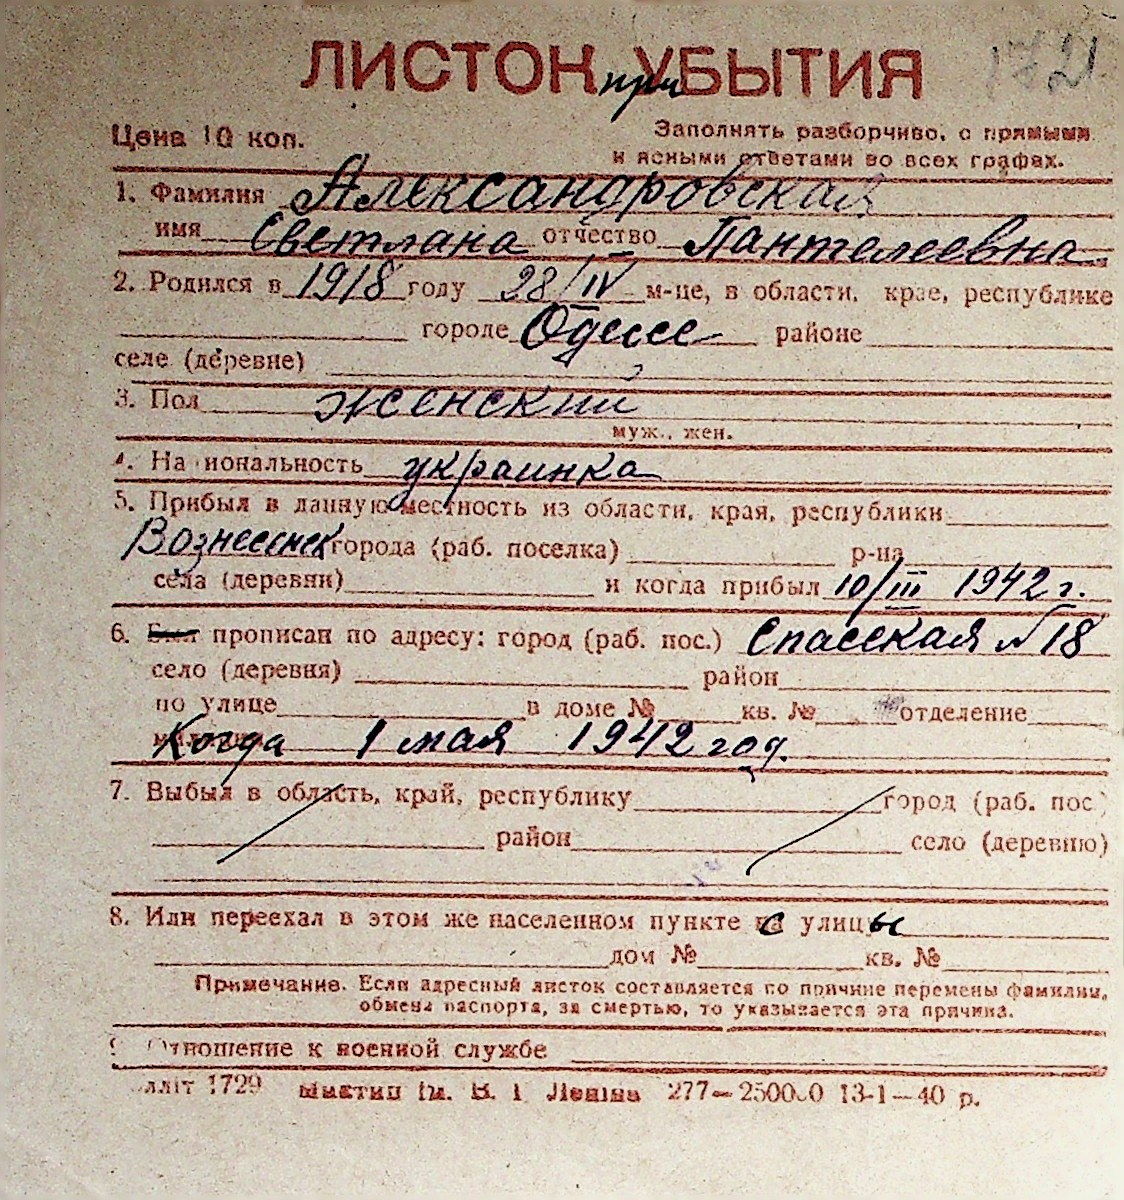 ЛИСТОК при УБЫТИЯ 1721
Цена 10 коп. Заполнять разборчиво, с прямыми
и ясными ответами во всех графах.
1. Фамилия Александровская
имя Светлана отчество Пантелеевна
2. Родился в 1918 году 28/IV м-це, в области, крае, республике
городе Одессе районе
селе (деревне)
3. Пол женский
муж., жен.
4. На иональность украинка
5. Прибыл в данную местность из области, края, республики
Вознесенск города (раб. поселка) р-на
села (деревни) и когда прибыл 10/III 1942 г.
6. Был прописан по адресу: город (раб. пос.) Спасская № 18
село (деревня) район
по улице в доме № кв. № отделение
Когда 1 мая 1942 год.
7. Выбыл в область, край, республику город (раб. пос.)
район село (деревню)
8. Или переехал в этом же населенном пункте с улицы
дом № кв. №
Примечание. Если адресный листок составляется по причине перемены фамилии,
обмена паспорта, за смертью, то указывается эта причина.
9. Отношение к военной службе
лліт 1729 Миктип ім. В. І Леніна 277—250000 13-1—40 р.